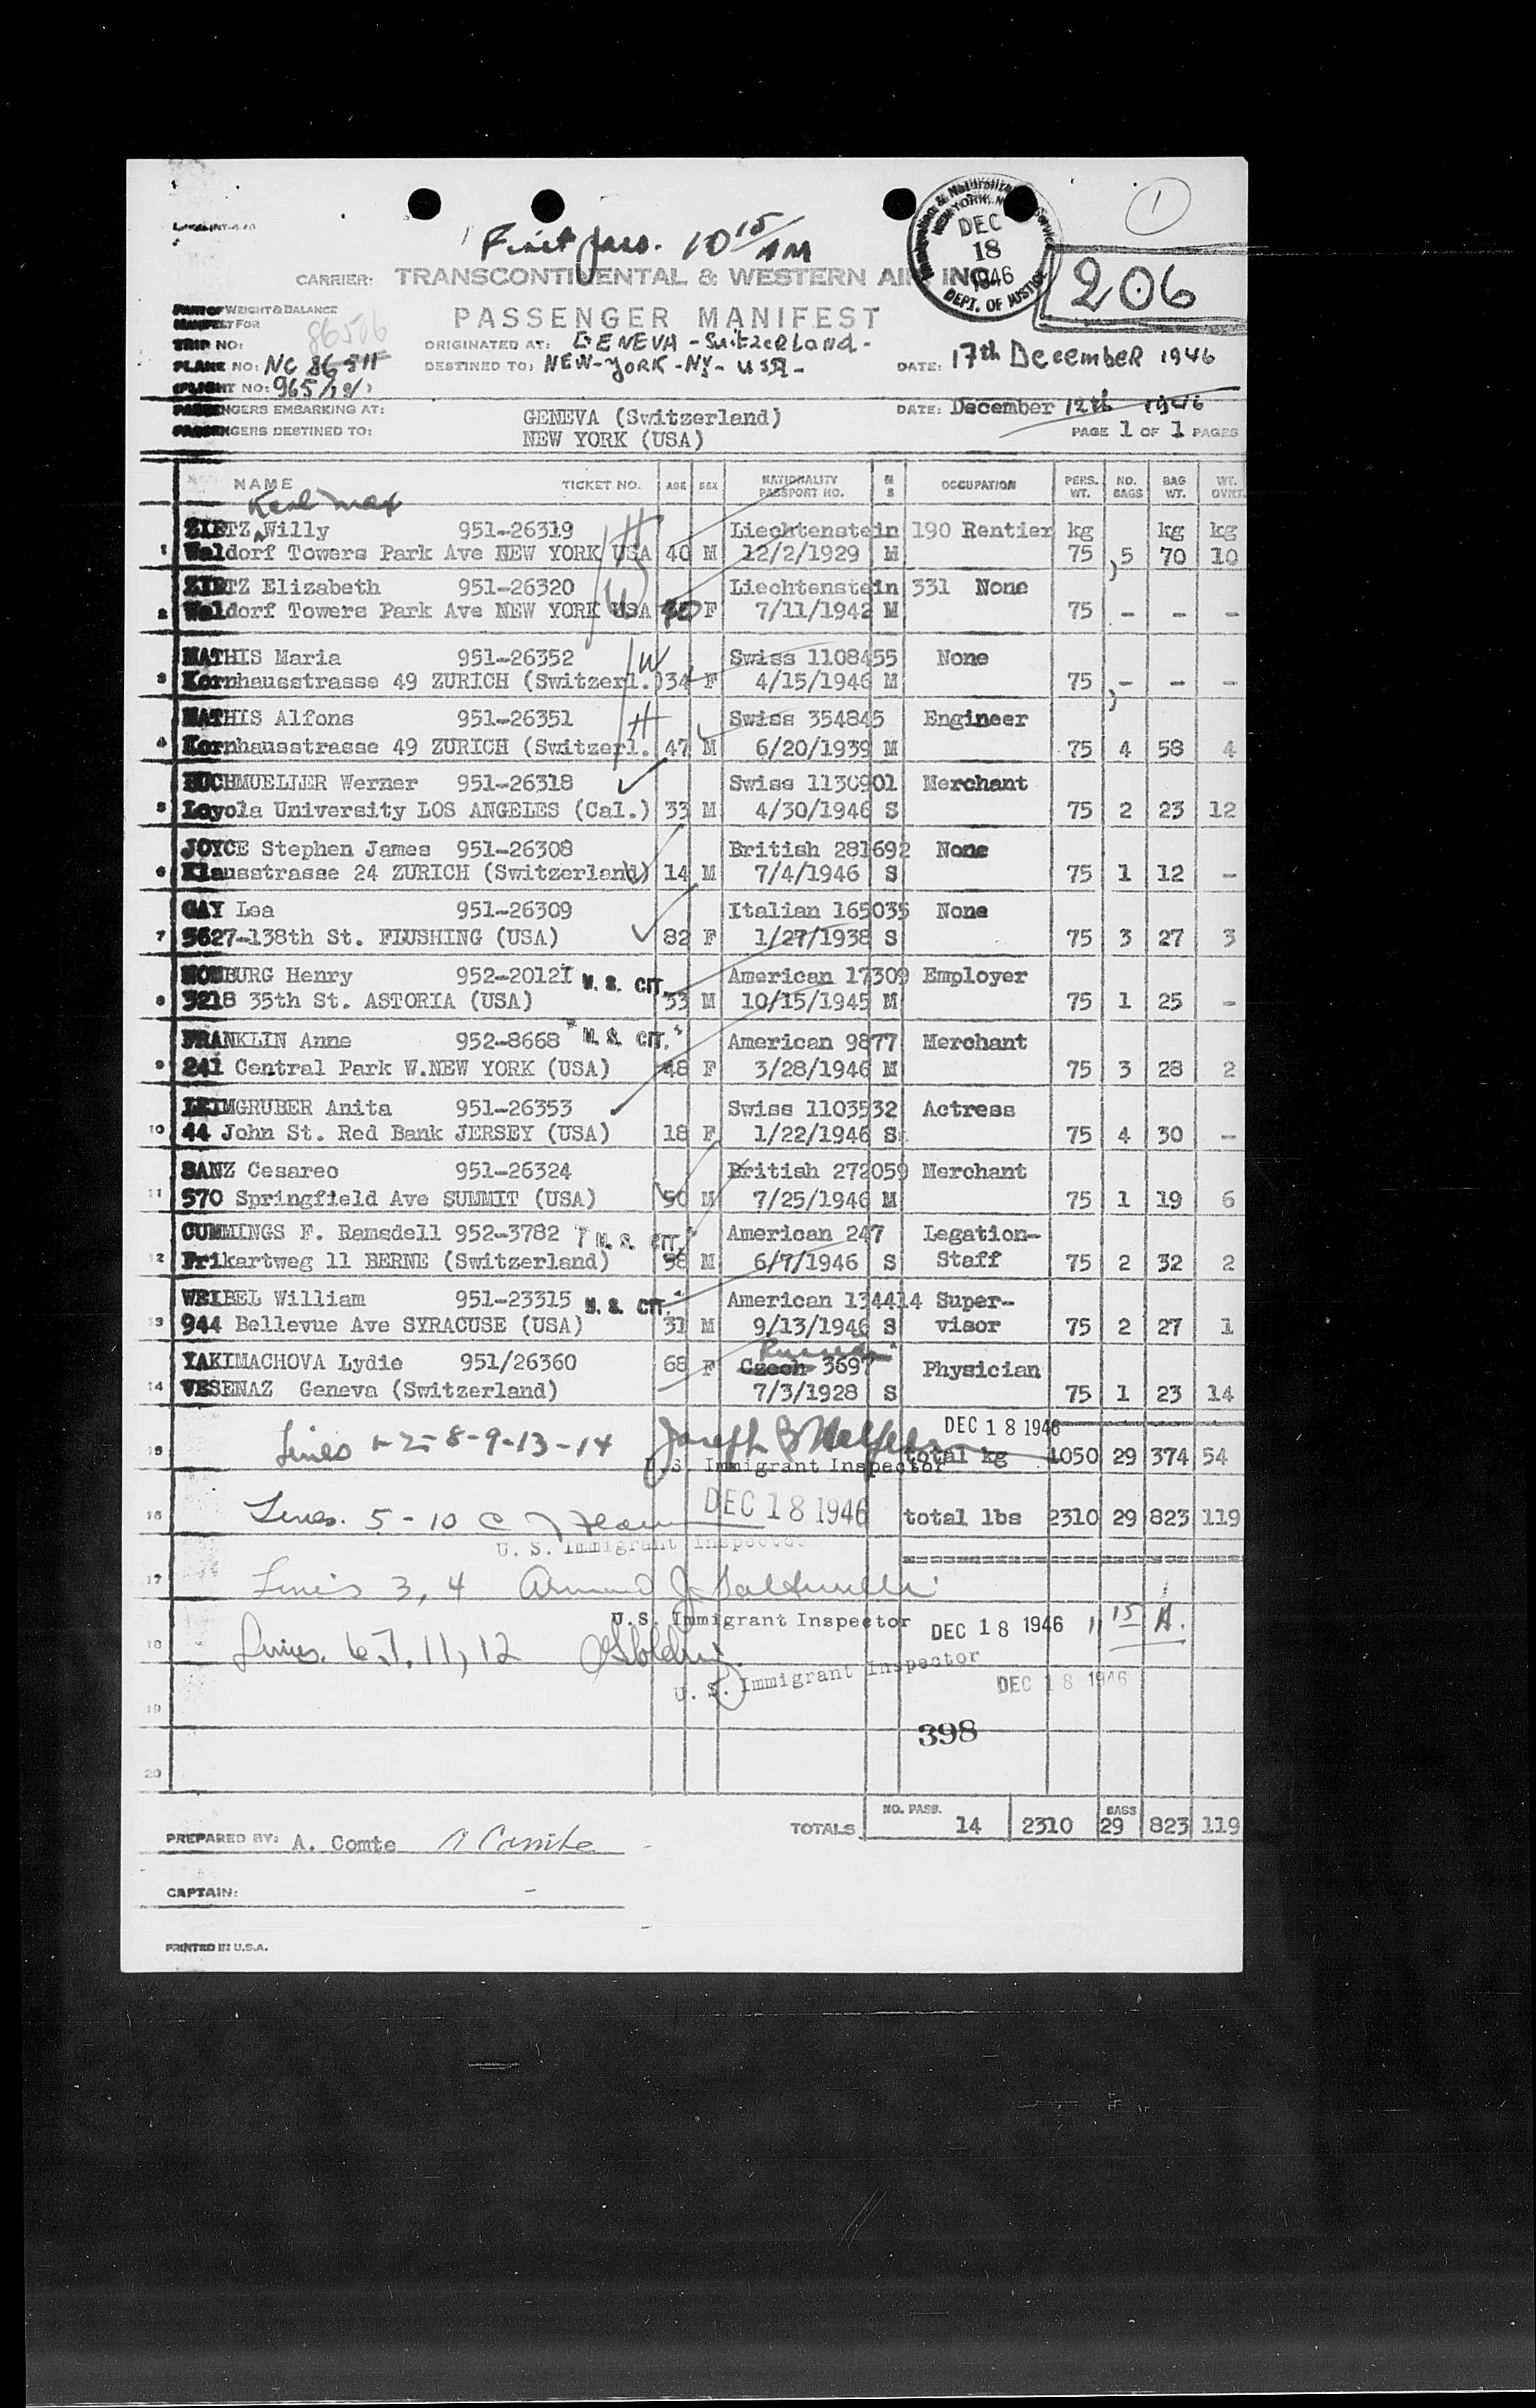 First pass. 10 15/AM
1
Immigration & Naturalization Service
NEW YORK, N.Y.
DEC
18
1946
DEPT. OF JUSTICE
206
CARRIER: TRANSCONTINENTAL & WESTERN AIR INC.
PART OF WEIGHT & BALANCE
MANIFEST FOR
PASSENGER MANIFEST
86506
TRIP NO:
ORIGINATED AT: GENEVA - Switzerland -
PLANE NO: NC 86511
DESTINED TO: NEW-YORK - NY - USA -
DATE: 17th December 1946
(FLIGHT NO: 965/18/)
PASSENGERS EMBARKING AT: GENEVA (Switzerland)
DATE: December 12th 1946
PASSENGERS DESTINED TO: NEW YORK (USA)
PAGE 1 OF 1 PAGES
NAME TICKET NO. AGE SEX NATIONALITY PASSPORT NO. M S OCCUPATION PERS. WT. NO. BAGS BAG WT. WT. OVRT.
Karl Max
ZIETZ Willy 951-26319 H Liechtenstein 190 Rentier kg kg kg
1 Waldorf Towers Park Ave NEW YORK USA 40 M 12/2/1929 M 75 5 70 10
ZIETZ Elizabeth 951-26320 W Liechtenstein 331 None
2 Waldorf Towers Park Ave NEW YORK USA 40 F 7/11/1942 M 75 - - -
MATHIS Maria 951-26352 W Swiss 1108455 None
3 Kornhausstrasse 49 ZURICH (Switzerl.) 34 F 4/15/1946 M 75 - - -
MATHIS Alfons 951-26351 H Swiss 354845 Engineer
4 Kornhausstrasse 49 ZURICH (Switzerl. 47 M 6/20/1939 M 75 4 58 4
BUCHMUELLER Werner 951-26318 Swiss 1130901 Merchant
5 Loyola University LOS ANGELES (Cal.) 33 M 4/30/1946 S 75 2 23 12
JOYCE Stephen James 951-26308 British 281692 None
6 Klausstrasse 24 ZURICH (Switzerland) 14 M 7/4/1946 S 75 1 12 -
GAY Lea 951-26309 Italian 165035 None
7 3627-138th St. FLUSHING (USA) 82 F 1/27/1938 S 75 3 27 3
HOMBURG Henry 952-20121 U. S. CIT. American 17309 Employer
8 3218 35th St. ASTORIA (USA) 33 M 10/15/1945 M 75 1 25 -
FRANKLIN Anne 952-8668 "U. S. CIT." American 9877 Merchant
9 241 Central Park W.NEW YORK (USA) 48 F 3/28/1946 M 75 3 28 2
LEIMGRUBER Anita 951-26353 Swiss 1103532 Actress
10 44 John St. Red Bank JERSEY (USA) 18 F 1/22/1946 S 75 4 30 -
SANZ Cesareo 951-26324 British 272059 Merchant
11 570 Springfield Ave SUMMIT (USA) 50 M 7/25/1946 M 75 1 19 6
CUMMINGS F. Ramsdell 952-3782 "U. S. CIT." American 247 Legation-
12 Frikartweg 11 BERNE (Switzerland) 58 M 6/7/1946 S Staff 75 2 32 2
WEIBEL William 951-23315 U. S. CIT." American 134414 Super-
13 944 Bellevue Ave SYRACUSE (USA) 31 M 9/13/1946 S visor 75 2 27 1
Russian
YAKIMACHOVA Lydie 951/26360 68 F Czech 3697 Physician
14 VESENAZ Geneva (Switzerland) 7/3/1928 S 75 1 23 14
DEC 18 1946
15 Lines 1-2-8-9-13-14 Joseph B total kg 1050 29 374 54
U.S. Immigrant Inspector
16 Lines. 5-10 DEC 18 1946 total lbs 2310 29 823 119
U. S. Immigrant Inspector
17 Lines 3, 4 Armand J.
U.S. Immigrant Inspector DEC 18 1946 11 15 A.
18 Lines. 6, 7, 11, 12
U. S. Immigrant Inspector
DEC 18 1946
19
398
20
TOTALS NO. PASS. 14 2310 BAGS 29 823 119
PREPARED BY: A. Comte A Comte
CAPTAIN: -
PRINTED IN U.S.A.